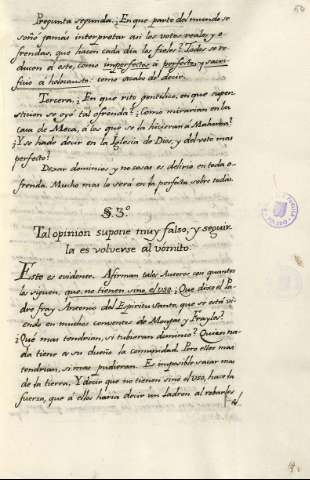 50
Pregunta segunda. ¿En que parte del mundo se
soñó jamàs interpretar asi los votos reales, y o-
frendas, que hacen cada dia los fieles? Todas se re-
ducen al este, como imperfectas a perfecta, y sacri-
ficio ò holocausto: como acabo de decir.
Tercera. ¿En que rito gentilico, en que super-
sticion se oyó tal ofrenda? ¿Como mirarian en la
casa de Meca, a los que se la hicieran a Mahoma?
¿Y se hade decir en la Iglesia de Dios, y del voto mas
perfecto?
Dexar dominios, y no cosas es delirio en toda o-
frenda. Mucho mas lo serà en la perfecta sobre todas.
§. 3.º
Tal opinion supone muy falso, y seguir-
la es volverse al vómito.
Esto es evidente. Afirman tales Autores con quantos
les siguen, que no tienen sino el uso. ¿Que dice el Pa-
dre fray Antonio del Espiritu Santo, que se está vi-
endo en muchos conventos de Monjas, y Frayles?
¿Què mas tendrian, si tubieran dominio? Quitan na-
da tiene a su dueño la comunidad. Pero ellos mas
tendrian, si mas pudieran. Es imposible sacar mas
de la tierra. Y decir que no tienen sino el uso, hace la
fuerza, que à ellos haria decir un ladron al robarles